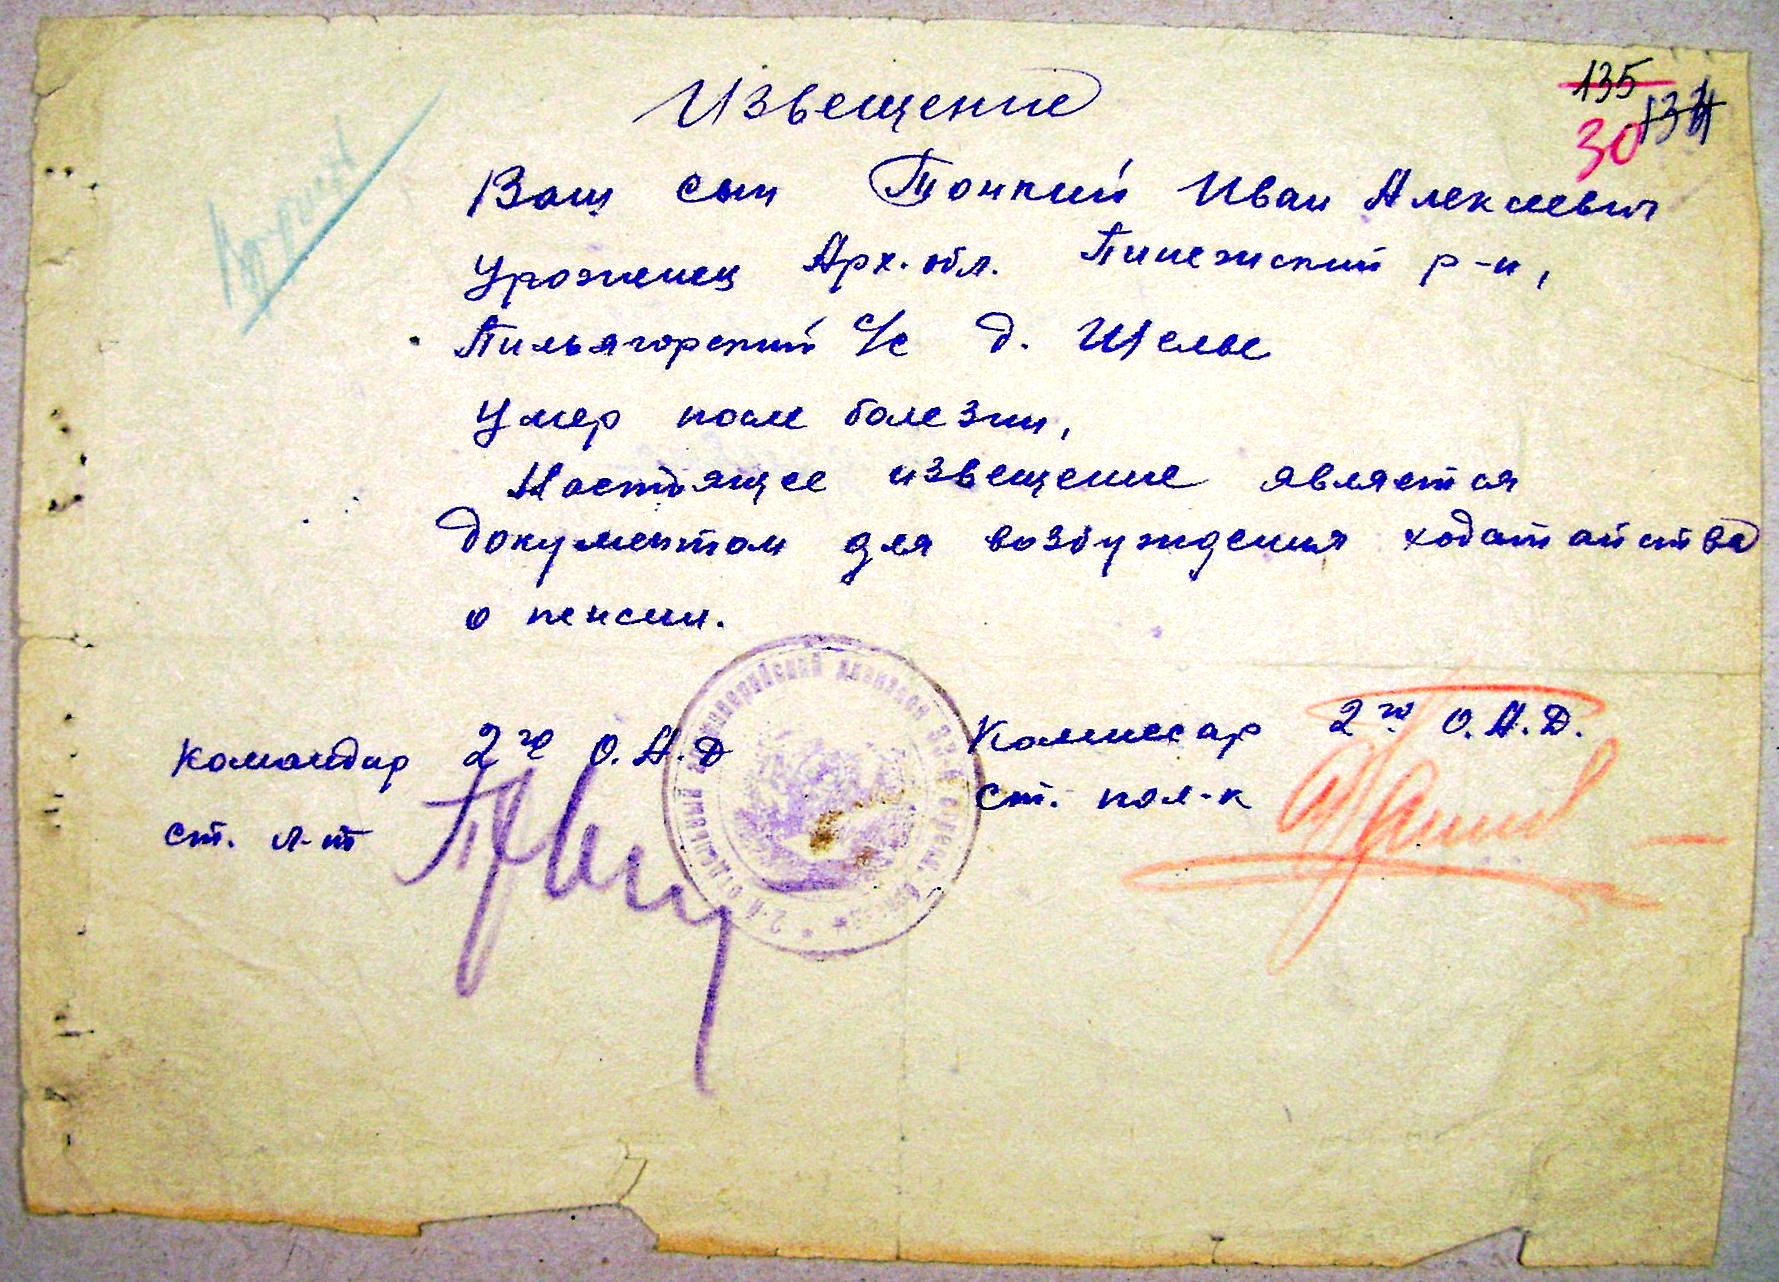 135
30
Извещение
Ваш сын Тонкий Иван Алексеевич
Уроженец Арх. обл. Пинежский р-н,
Пильегорский с/с д. Щелье
Умер после болезни,
Настоящее извещение является
документом для возбуждения ходатайства
о пенсии.
Командир 2го О.А.Д
ст. л-т
Комиссар 2го О.А.Д.
ст. пол-к